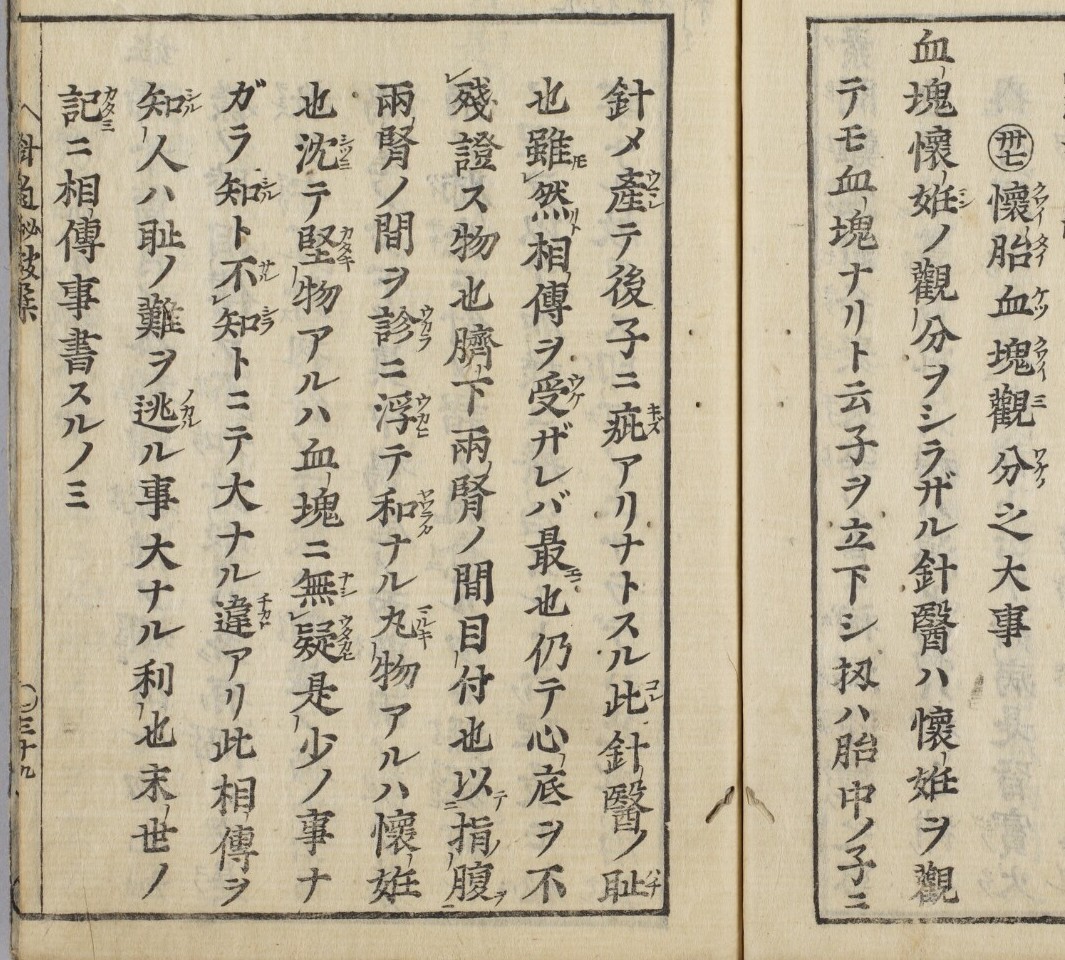 ㊲懷胎血塊觀分之大事
血塊懷姙ノ觀分ヲシラザル針醫ハ懷姙ヲ觀
テモ血塊ナリト云子ヲ立下シ扨ハ胎中ノ子ニ
針メ產テ後子ニ疵アリナトスル此針醫ノ耻
也雖然相傳ヲ受ザレバ最也仍テ心底ヲ不
殘證ス物也臍下兩腎ノ間目付也以指腹
兩腎ノ間ヲ診ニ浮テ和ナル丸物アルハ懷姙
也沈テ堅物アルハ血塊ニ無疑是少ノ事ナ
ガラ知ト不知トニテ大ナル違アリ此相傳ヲ
知人ハ耻ノ難ヲ逃ル事大ナル利也末世ノ
記ニ相傳事書スルノミ
三十九